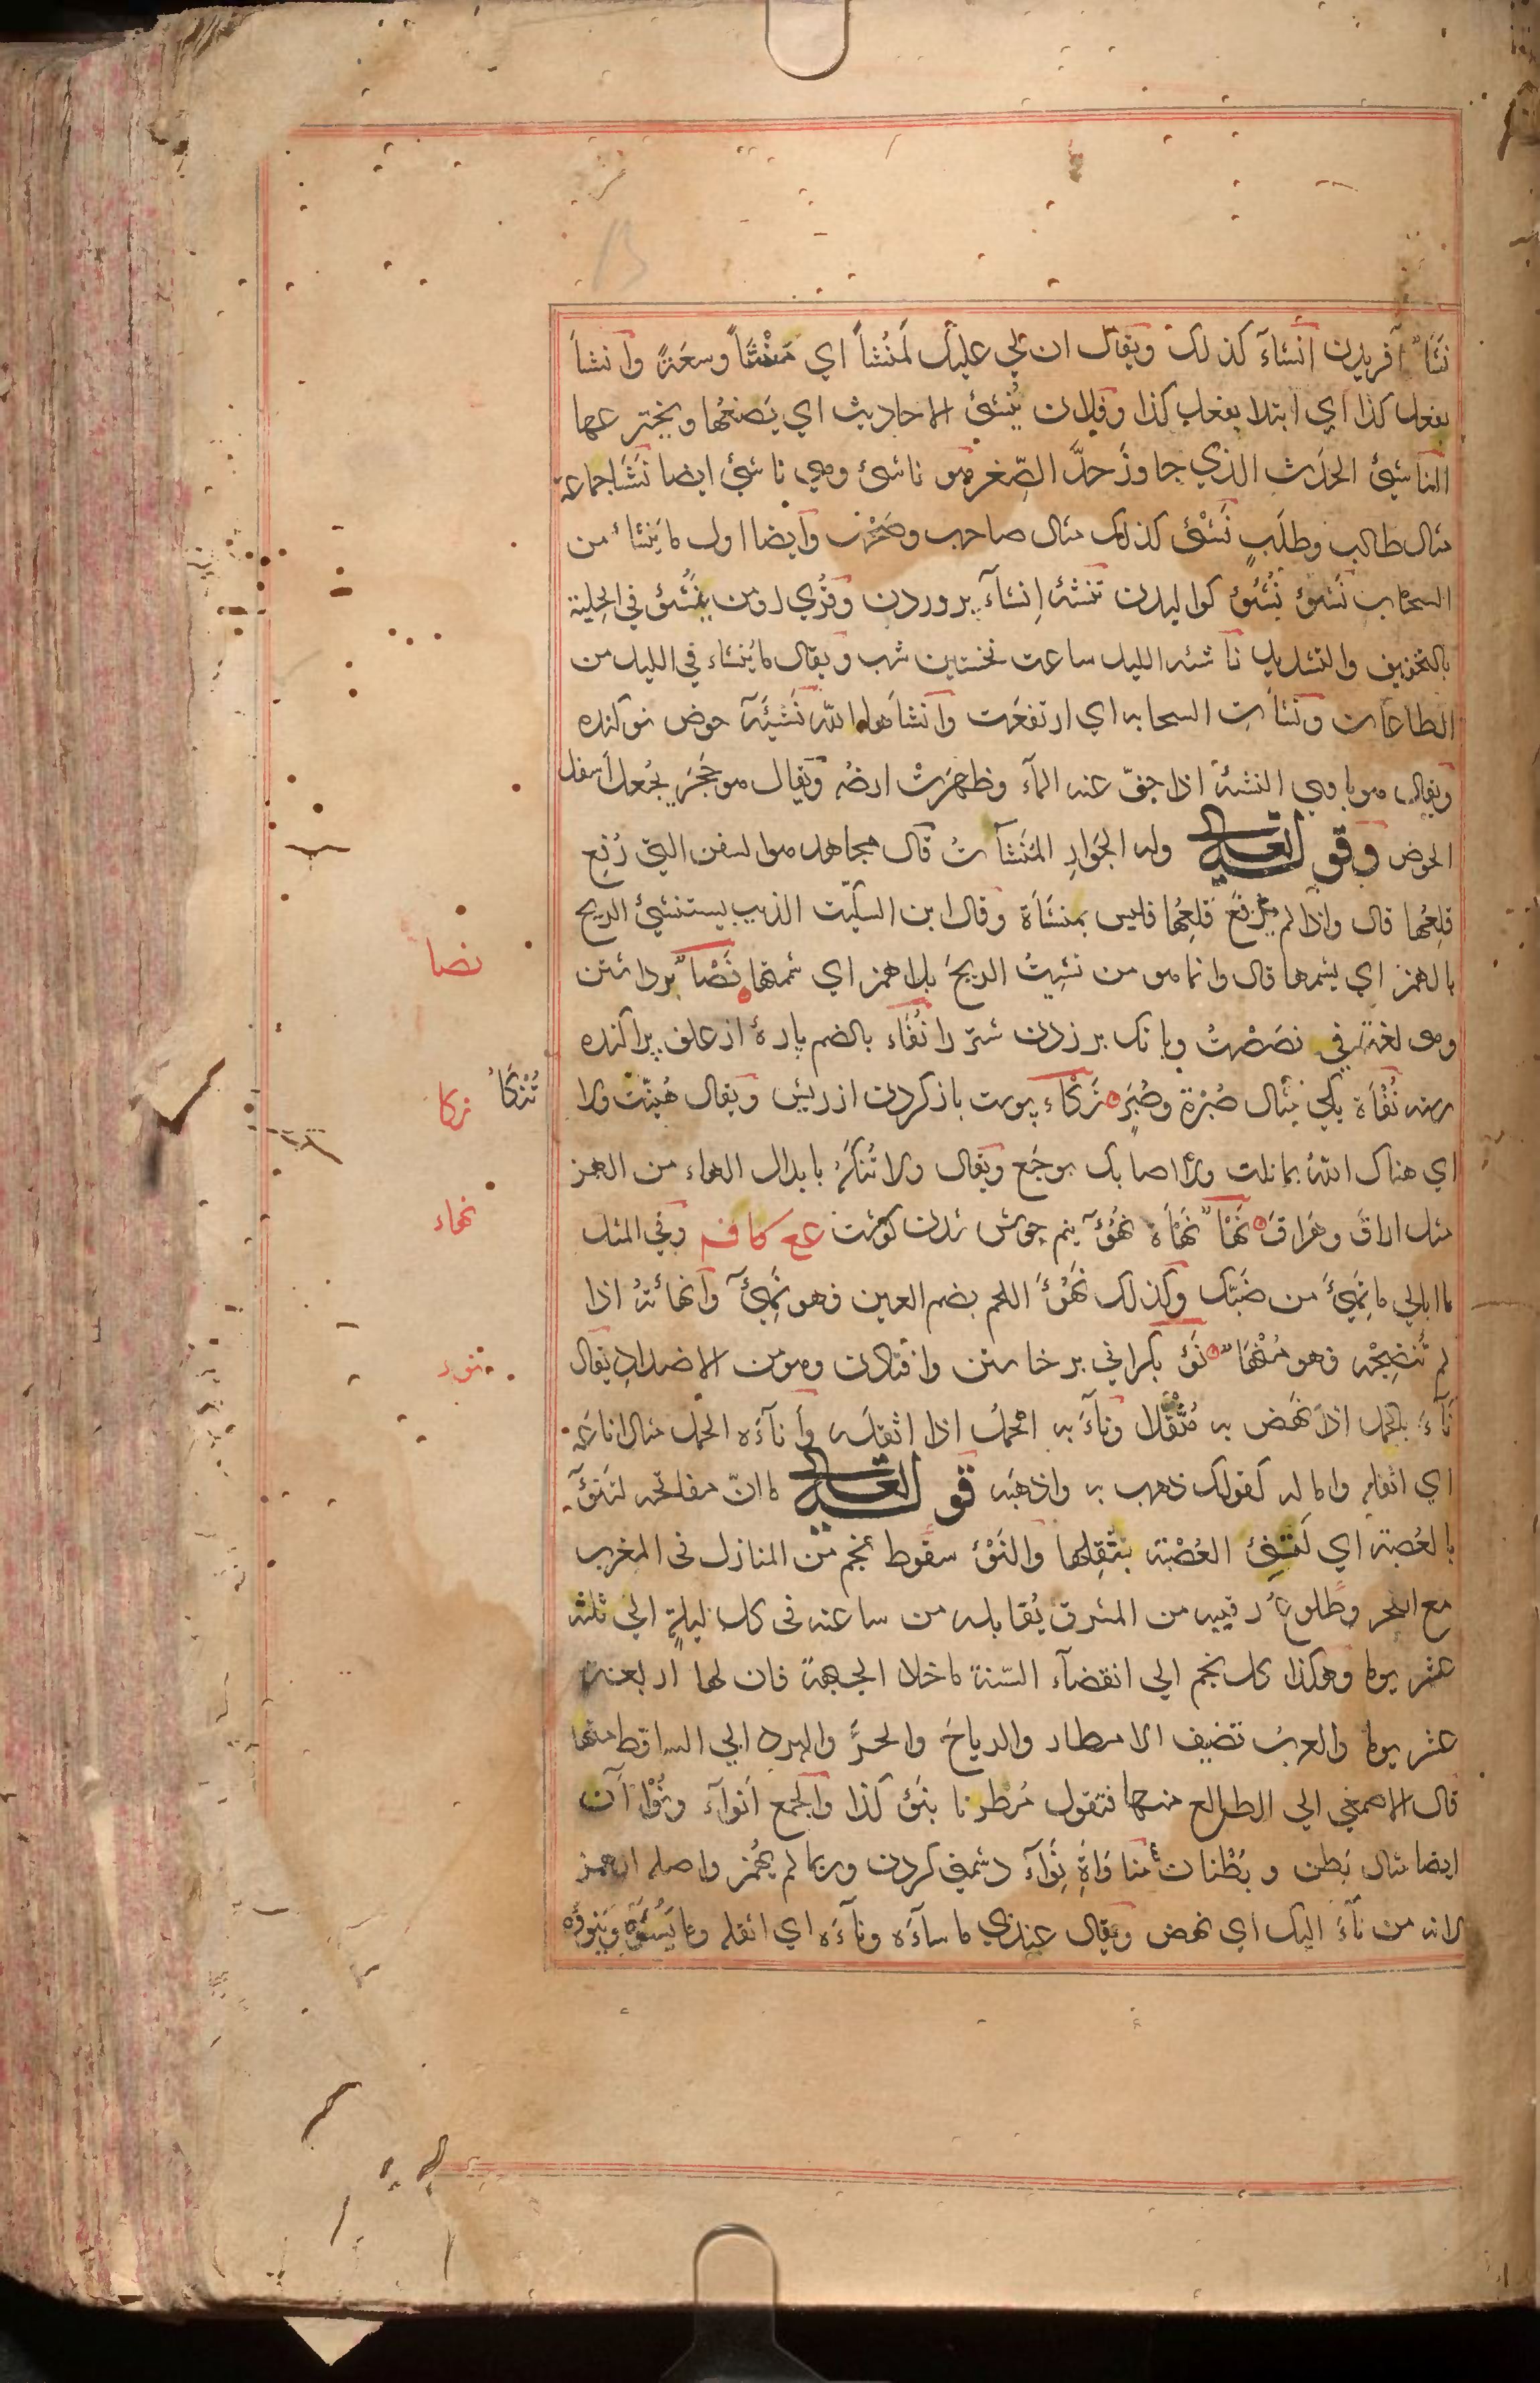 نَشَأ آفریدن اِنشاءَ کذلک ویقال ان لی علیک لَمَنْشَأً ای مَنْشَأً وسعَةً وانشأ
یفعل کذا ای ابتدا یفعل کذا وفلان یُنشئ الاحادیث ای یَصنعُها ویخترعها
الناشِئ الحَدَث الذی جاوزَ حدَّ الصِّغَر هو ناشئ وهی ناشئ ایضا نَشَأ جماعة
مثال طالب وطلَبٍ نَشْئ کذلک مثال صاحب وصَحْب وایضا اول ما یَنشاءُ من
السحاب نَشوُء نُشُوء کوالیدن تنشئة اِنشاءَ پروردن وقُرِی اومن یُنَشَّؤُ فی الحِلیة
بالتخفیف والتشدید ناشئة اللیل ساعت نخستین شب ویقال ما یُنشاء فی اللیل من
الطاعات ونَشأتِ السحابه ای ارتفعَت وانشأها الله نَشِیئَة حوض نوکنده
ویقال هو بادی النشئة اذا جفّ عنه الماء وظهرَتْ ارضُه ویقال هو حَجَر یُجعل أسفل
الحوض وقوله تعالی وله الجَوَارِ المُنشآتُ قال مجاهد هوا لسفن التی رُفِع
قِلعُها قال واذا لم یُرفَع قِلعُها فلیس بمنشأة وقال ابن السکیت الذیب یستنشئ الریح
بالهمز ای یشمها قال وانما هو من نشِیتُ الریحَ بلا همز ای شممتها نَصْأ برداشتن
وهی لغة فی نصَصْتُ وبانک بر زدن شتر را نُفَاء بالضم پارهٔ از علف پراکنده
رسته نُفْأة یکی مثال صُبْرة وصُبَر نَکْاء پوست بازکردن از ریش ویقال هُنِّئتَ ولا
تُنْکَأْ
ای هناک اللهُ بما نلت ولا اصابک بوجَع ویقال ولا تُنکَه بابدال الهاء من الهمز
مثل اراقَ وهَراقَ نَهْأ نَهْأة نُهُوء نیم جوش شدن کوشت عع کافم وفی المثل
ما ابالی ما نَهِئَ من ضَبّک وکذلک نَهُؤَ اللحم بضم العین فهو نَهِئ وانهأتُه اذا
لم تُنضِجْه فهو مُنْهَأ نَوْء بکرانی برخاستن وافتادن وهو من الاضداد یقال
نآءَ بالحمل اذا نَهَض به مُثْقَلا وناءَ به الحِملُ اذا اثقله وأناءَه الحمل مثال اناعَه
ای اثقله واماله کقولک ذهب به واذهبَه قوله تعالی ما انّ مفاتحه لتَنوُء
بالعُصبة ای لَتُنِئ العُصْبة بثِقلِها والنَوْء سقوط نجم من المنازل فی المغرب
مع الفجر وطلوعُ رقیبه من المشرق یُقابله من ساعته فی کل لیلةٍ الی ثلثه
عشر یوما وهکذا کل نجم الی انقضآء السّنة ما خلا الجبهة فان لها اربعة
عشر یوما والعربُ تضیف الامطار والریاحَ والحرَّ والبرد الی الساقط منها
قال الاصمعی الی الطالع منها فتقول مُطِرنا بنَوء کذا والجمع اَنوآء ونُوْآن
ایضا مثال بَطن وبُطْنان مُناوَأة نِوآء دشمنی کردن وربما لم یُهمَز واصله الهمز
لانه من نآءَ الیک ای نهض ویقال عندی ما سآءَه ونآءَه ای اثقله وما یَسُوؤه ویَنوؤه
نصا
نکا
نهاء
نوء